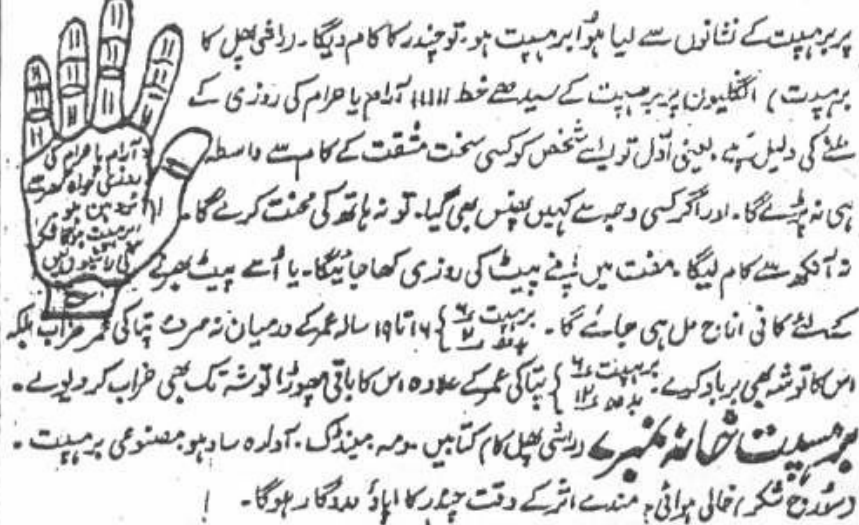 پر برہسپت کے نشانوں سے لیا ہؤا برہسپت ہو۔ تو چندر کا کام دیگا۔ راشی پھل کا
برہسپت) انگلیوں پر برہسپت کے سیدھے خط ااااا آرام یا حرام کی روزی کے
ملنے کی دلیل ہے۔ یعنی اوّل تو ایسے شخص کو کسی سخت مشقت کے کام سے واسطہ
ہی نہ پڑے گا۔ اور اگر کسی وجہ سے کہیں پھنس بھی گیا۔ تو نہ ہاتھ کی محنت کرے گا۔
نہ آنکھ سے کام لیگا۔ مفت میں اپنے پیٹ کی روزی کھا جائیگا۔ یا اُسے پیٹ بھرنے
کے لئے کافی اناج مل ہی جائے گا۔ برہسپت ۶ بدھ } ۱۶ تا ۱۹ سالہ عمر کے درمیان نہ صرف پتا کی عمر خراب بلکہ
اس کا توشہ بھی برباد کرے۔ برہسپت ۶ بدھ ۱۲ } پتا کی عمر کے علاوہ اس کا باقی چھوڑا توشہ تک بھی خراب کر دیوے۔
برہسپت خانہ نمبر ۷ (راشی پھل کام کتابیں۔ دمہ۔ مینڈک۔ آوارہ سادہو۔ مصنوعی برہسپت۔
(سورج شکر) خالی ہوائی۔ مندے اثر کے وقت چندر کا اپاؤ مددگار ہوگا۔
آرام یا حرام کی
روزی خواہ
برہسپت